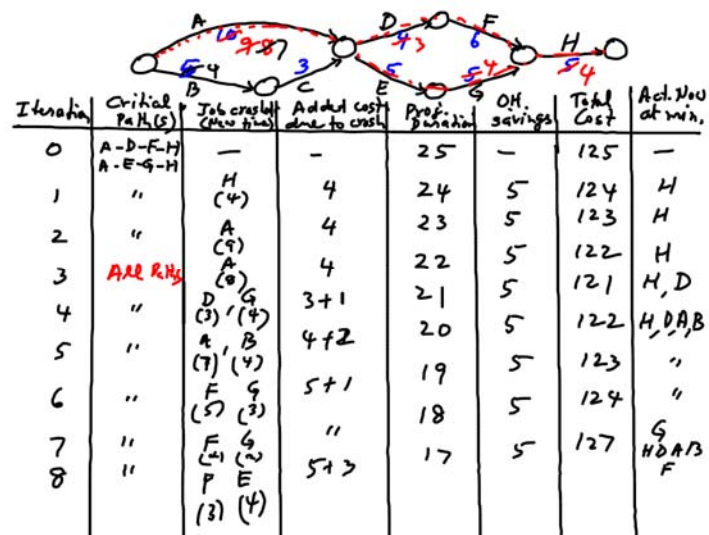 A D F
10 9 8 7 4 3 6 H
5 4 3 5 5 4 5 4
B C E G
Iteration Critical Path(s) Job crashed (New time) Added cost due to crash Proj. Duration OH savings Total Cost Act. Now at min.
0 A-D-F-H — - 25 — 125 —
A-E-G-H
1 " H (4) 4 24 5 124 H
2 " A (9) 4 23 5 123 H
3 All Paths A (8) 4 22 5 122 H
4 " D (3), G (4) 3+1 21 5 121 H, D
5 " A (7), B (4) 4+2 20 5 122 H, D, A, B
6 " F (5) G (3) 5+1 19 5 123 "
7 " F G " 18 5 124 "
8 " F (3) E (4) 5+3 17 5 127 G
H D A B
F